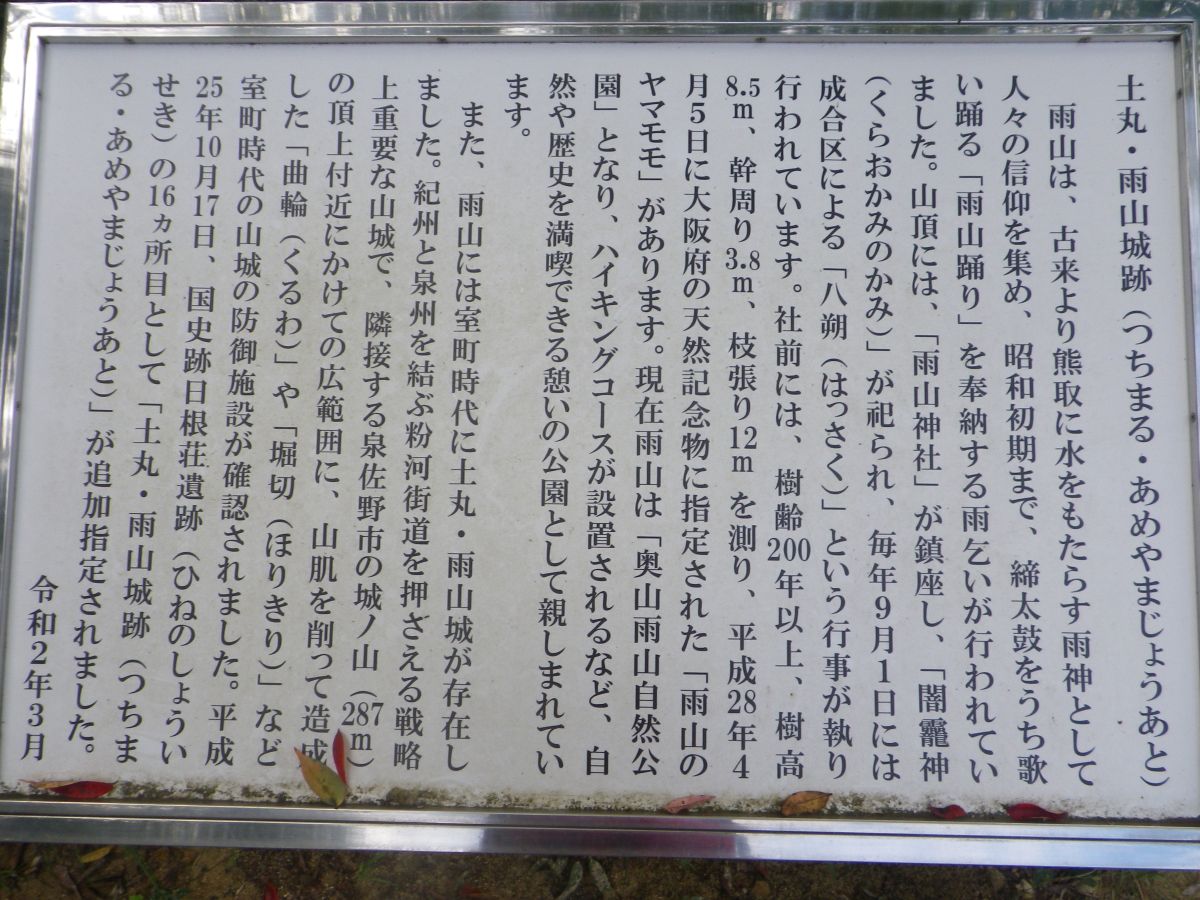 土丸・雨山城跡（つちまる・あめやまじょうあと）
雨山は、古来より熊取に水をもたらす雨神として
人々の信仰を集め、昭和初期まで、締太鼓をうち歌
い踊る「雨山踊り」を奉納する雨乞いが行われてい
ました。山頂には、「雨山神社」が鎮座し、「闇龗神
（くらおかみのかみ）」が祀られ、毎年９月１日には
成合区による「八朔（はっさく）」という行事が執り
行われています。社前には、樹齢200年以上、樹高
8.5m、幹周り3.8m、枝張り12mを測り、平成28年４
月５日に大阪府の天然記念物に指定された「雨山の
ヤマモモ」があります。現在雨山は「奥山雨山自然公
園」となり、ハイキングコースが設置されるなど、自
然や歴史を満喫できる憩いの公園として親しまれてい
ます。
また、雨山には室町時代に土丸・雨山城が存在し
ました。紀州と泉州を結ぶ粉河街道を押さえる戦略
上重要な山城で、隣接する泉佐野市の城ノ山（287m）
の頂上付近にかけての広範囲に、山肌を削って造成
した「曲輪（くるわ）」や「堀切（ほりきり）」など
室町時代の山城の防御施設が確認されました。平成
25年10月17日、国史跡日根荘遺跡（ひねのしょうい
せき）の16ヵ所目として「土丸・雨山城跡（つちま
る・あめやまじょうあと）」が追加指定されました。
令和２年３月